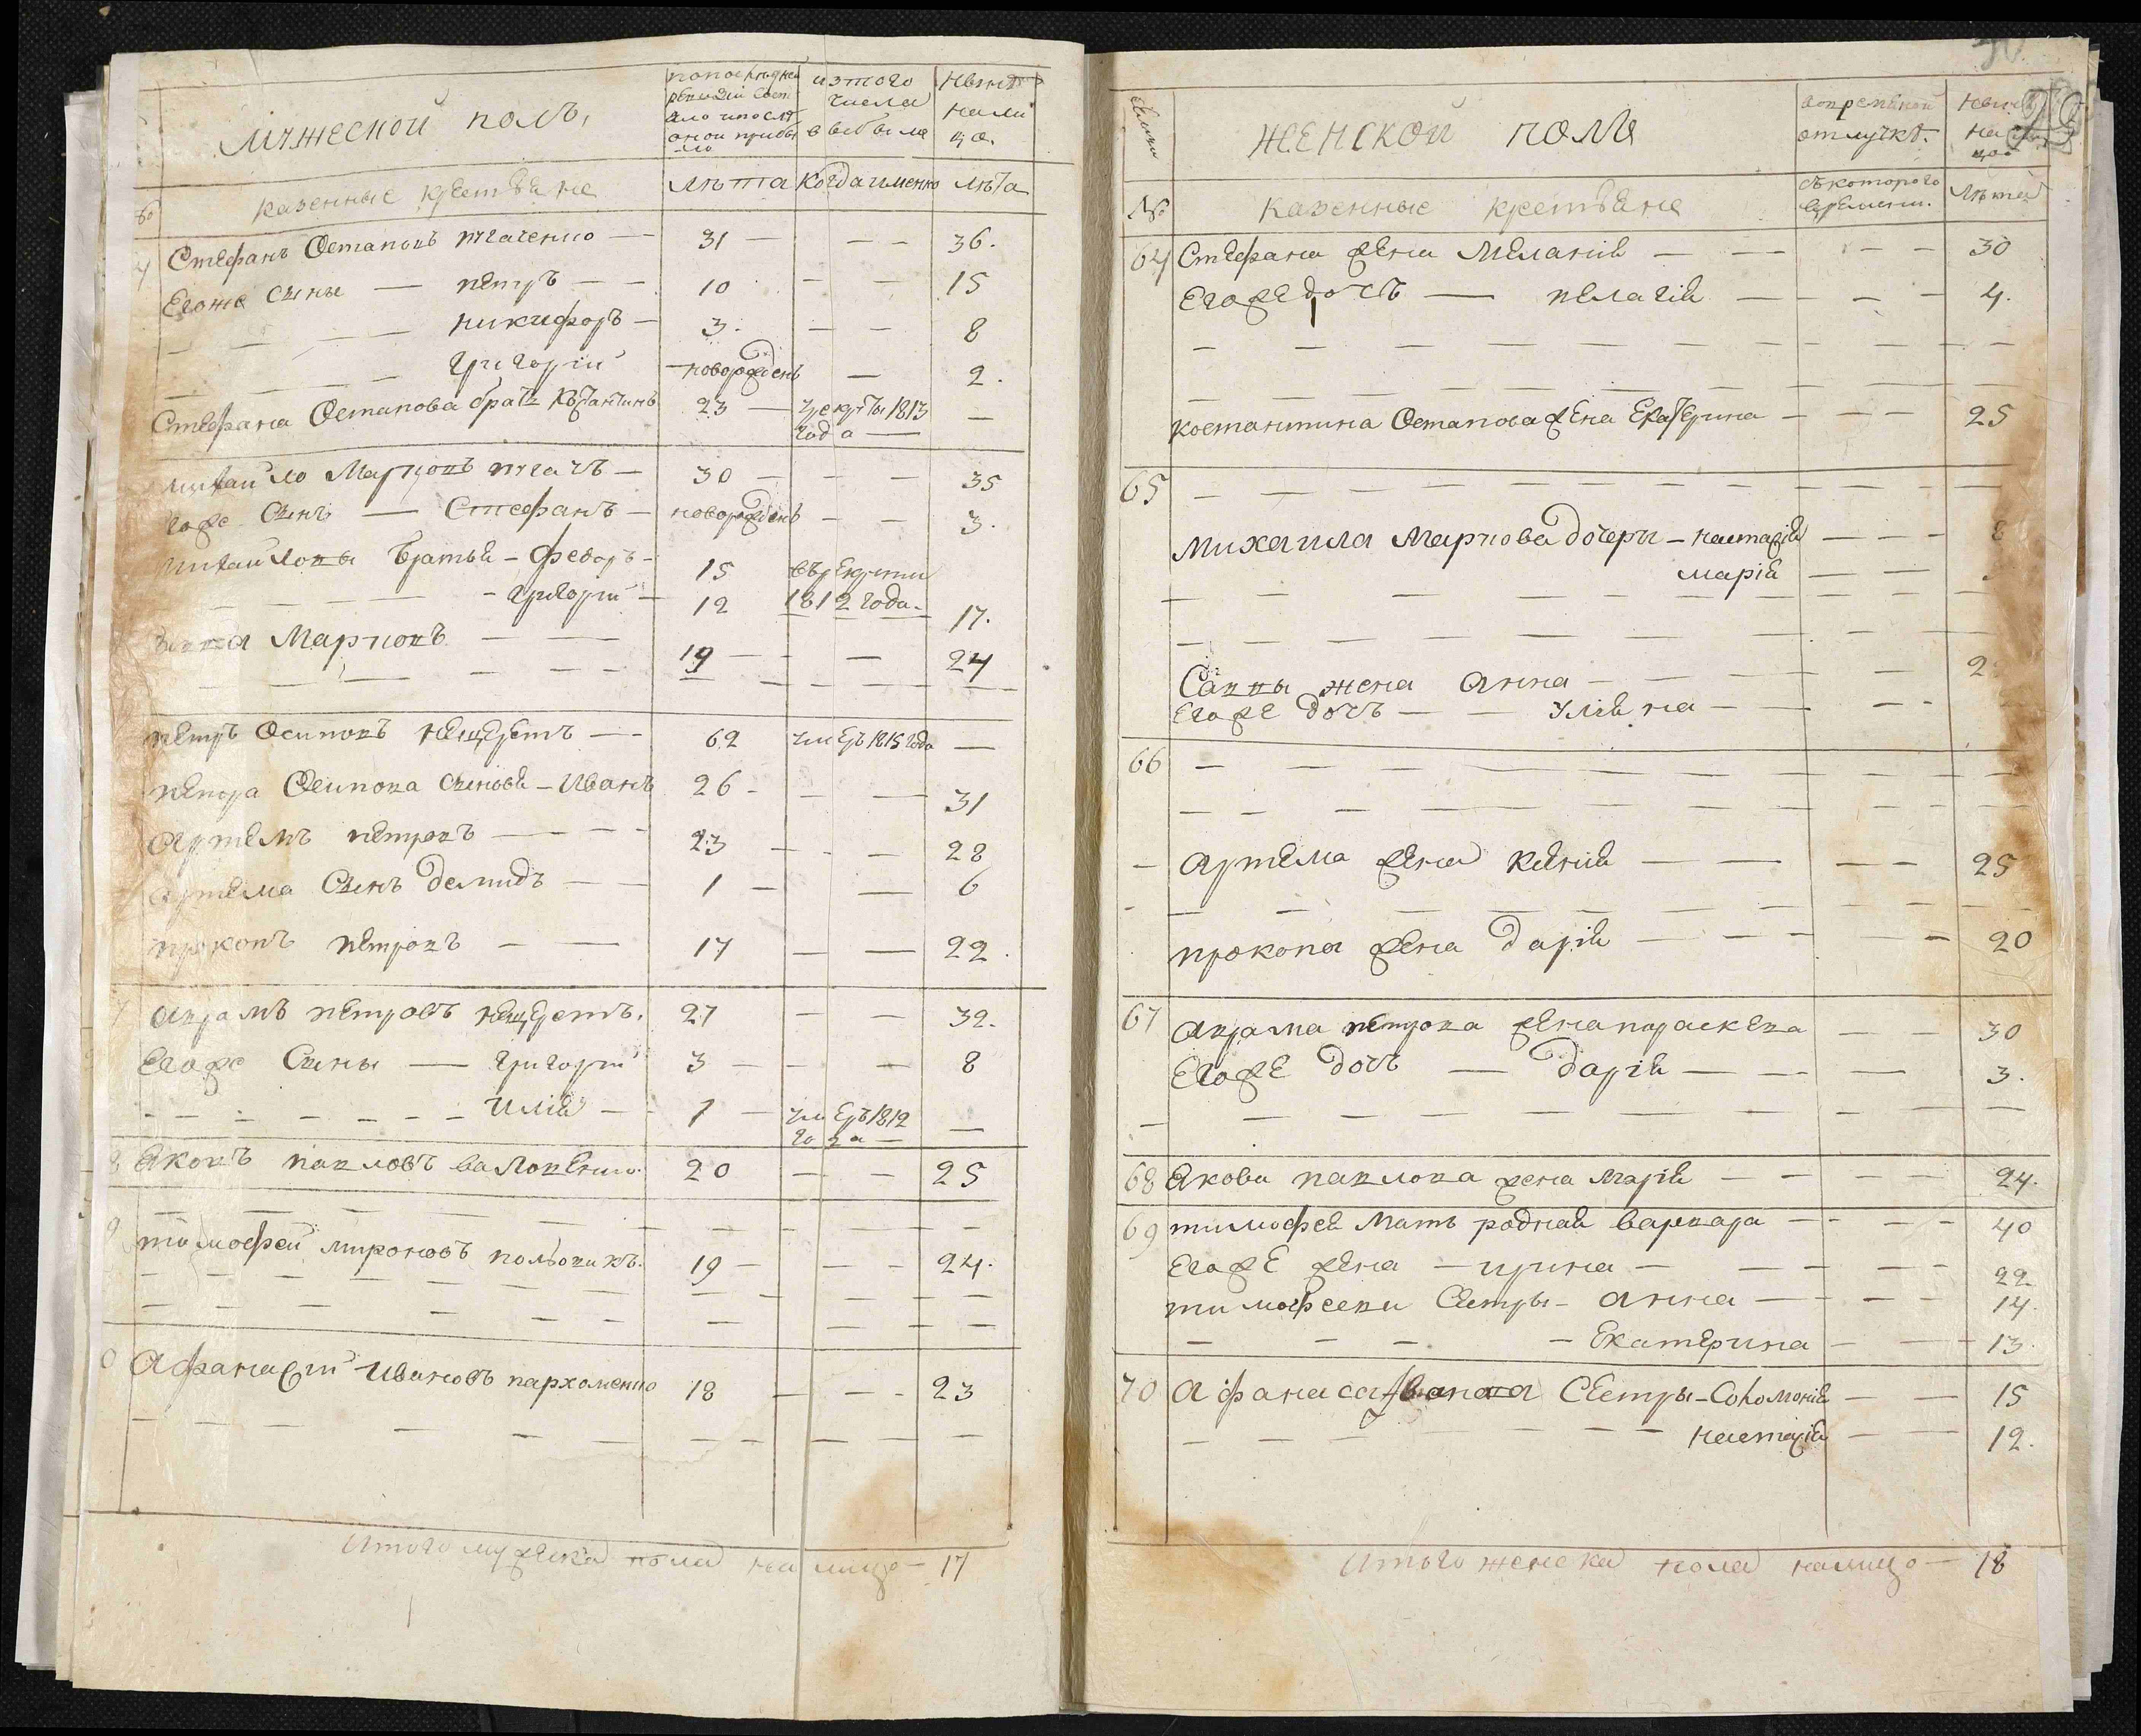 Мужеской полъ,
попоследней ревизіи состояло ипосле оной прибыло
изтого числа выбыло
нынѣ налицо.
№
казенные крестьяне
лѣта
когда именно
лѣта
Стефанъ Остаповъ ткаченко — 31 — — — 36.
Егоже сыны — петръ — — 10 — — 15
— — — никифоръ — 3. — — 8
— — — григорій новорожденъ — 2.
Стефана Остапова братъ Костантинъ 23 — 1813 года — —
михайло Марковъ ткачъ — 30 — — — 35
гоже Сынъ — Стефанъ — новорожденъ — — 3.
михайловы братья – федоръ – 15 въ рекруты
— — — – григорій – 12 1812 года. 17.
Марковъ — — 19 — — — 24
петръ Осиповъ нещеретъ — 62 умеръ 1815 года —
петра Осипова сыновья – Иванъ 26 – — — 31
артемъ петровъ — — — 23 — — — 28
артема Сынъ демидъ — — 1 — — 6
прокопъ петровъ — — 17 — — 22.
аврамъ петровъ нещеретъ. 27 — — 32.
Егоже Сыны — григорій 3 — — — 8
— — — — — — илія — 1 — умеръ 1812 года — —
Яковъ павловъ 20 — — 25
тимофей мироновъ 19 — — — 24.
Афанасій Ивановъ пархоменко 18 — — — 23
Итого мужеска пола на лицо — 17
женской полъ
вовременной отлучкѣ.
нынѣ на лицо
№
казенные крестьяне
съкоторого времени.
лѣта
64 Стефана жена Меланія — — — — 30
Егоже дочь — пелагія — — — — 4.
костантина Остапова жена Екатерина — — — 25
65 — — — — — — — —
михаила Маркова дочери – настасія — — —
марія — —
Саввы жена анна — — — —
Егоже дочь — — уліяна — — — —
66 — — — — — — — —
— артема жена ксенія — — — — 25
прокопа жена дарія — — — — — 20
67 аврама петрова жена параскева — — 30
Егоже дочь — дарія — — — — 3.
68 Якова павлова жена марія — — — — 24.
69 тимофея мать родная варвара — — — 40
Егоже жена — ирина — — — — — 22
тимофеевы Сестры – анна — — — — 14.
— — — – Екатерина — — — 13.
70 афанасія иванова Сестры – Соломонія — — 15
— — — — настасія — — 12.
Итого женска пола налицо — 18